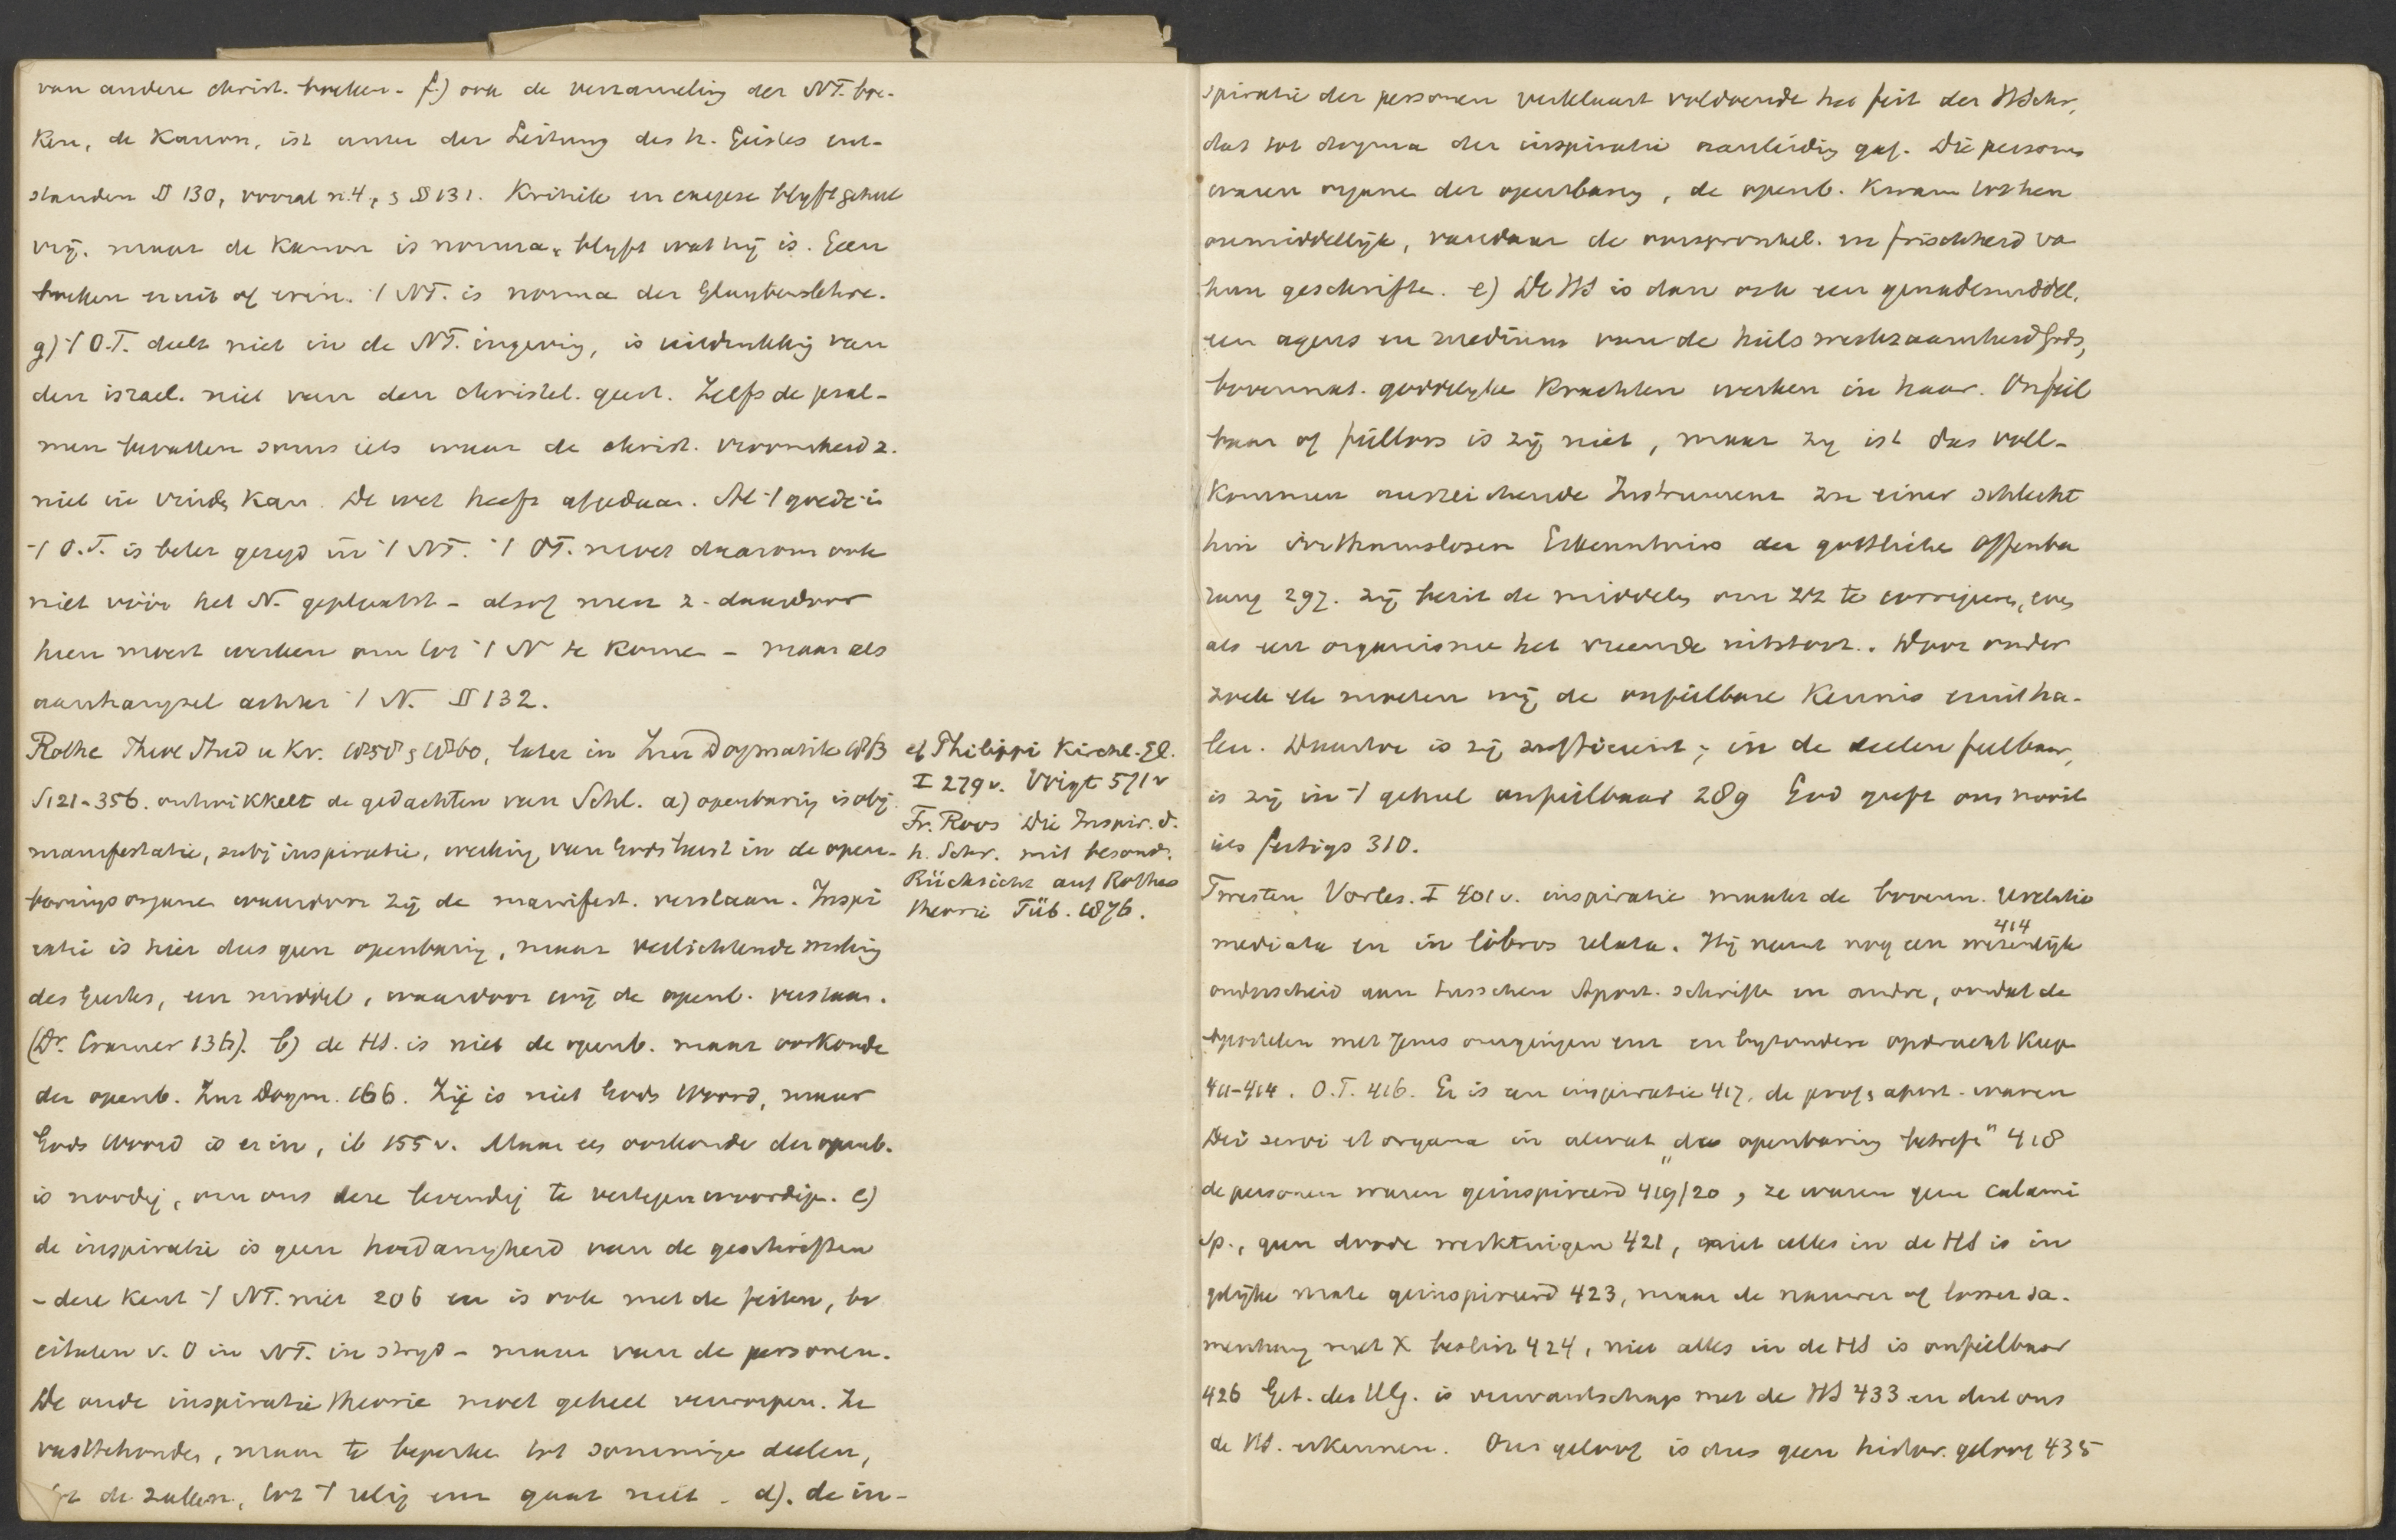 van andere christ. boeken. f) ook de verzameling der NT. boe-
ken, de Kanon, ist unter der Leitung des h. Geistes ent-
standen § 130, vooral n. 4, § 131. Kritiek en exegese blyft geheel
vrij. maar de Kanon is norma, blyft wat hij is. Geen
boeken eruit of erin. 't NT. is norma der Glaubenslehre.
g) 't O.T. deelt niet in de NT. ingeving, is uitdrukking van
den israel. niet van den christel. geest. Zelfs de psal-
men bevatten soms iets waar de christ. vroomheid z.
niet in vinden kan. De wet heeft afgedaan. Al 't goede in
't O.T. is beter gezegd in 't NT. 't OT. moet daarom ook
niet vóór het N. geplaatst - alsof men z. daardoor
heen moest werken om tot 't N te komen - maar als
aanhangsel achter 't N. § 132.
Rothe Theol Stud u Kr. 1858, 1860, later in Zur Dogmatik 1863
S 121-356. ontwikkelt de gedachten van Schl. a) openbaring is obj.
manifestatie, subj inspiratie, werking van Gods Geest in de open-
baringsorganen waardoor zij de manifest. verstaan. Inspi
ratie is hier dus geen openbaring, maar verlichtende werking
des Geestes, een middel, waardoor wij de openb. verstaan.
(Dr. Cramer 136). b) de HS. is niet de openb. maar oorkonde
der openb. Zur Dogm. 166. Zij is niet Gods Woord, maar
Gods Woord is er in, ib 155 v. Maar een oorkonde der openb.
is noodig, om ons deze levendig te vertegenwoordigen. c)
de inspiratie is geen hoedanigheid van de geschriften
- deze kent 't NT. niet 206 en is ook met de feiten, bv
citaten v. O in NT. in stryd - maar van de personen.
De oude inspiratie theorie moet geheel verworpen. Ze
vasttehouden, maar te beperken tot sommige deelen,
tot de zaken, tot 't relig enz gaat niet. d). de in-
cf Philippi Kirchl. Gl.
I 279 v. Voigt 571 v
Fr. Roos Die Inspir. d.
h. Schr. mit besond.
Rücksicht auf Rothes
theorie Tüb. 1876.
spiratie der personen verklaart voldoende het feit der HSchr,
dat tot dogma der inspiratie aanleiding gaf. Die personen
waren organen der openbaring, de openb. kwam tot hen
onmiddellijk, vandaar de oorspronkel. en frischheid va
hun geschriften. e) De HS is dan ook een genademiddel,
een agens en medium van de heilswerkzaamheid Gods,
bovennat. goddelyke krachten werken in haar. Onfeil
baar of feilloos is zij niet, maar zy ist das voll-
kommen ausreichende Instrument zu einer schlecht
hin irrthumslosen Erkenntniss der göttliche Offenba
rung 297. zij bezit de middelen om zich te corrigeren, even
als een organisme het vreemde uitstoot. Door onder
zoek etc moeten wij de onfeilbare kennis eruit ha-
len. Daartoe is zij sufficient; in de deelen feilbaar,
is zij in 't geheel onfeilbaar 289 God geeft ons nooit
iets fertigs 310.
Twesten Vorles. I 401 v. inspiratie maakte de bovenn. revelatio
mediata en in libros relata. Hij neemt nog een wezenlijk 414
onderscheid aan tusschen Apost. schriften en andre, omdat de
Apostelen met Jezus omgingen enz en byzondere opdracht kreg
411-414. O.T. 416. Er is een inspiratie 417, de prof, apost. waren
Dei servi et organa in alwat „de openbaring betreft" 418
de personen waren geinspireerd 419/20, ze waren geen calami
Sp., geen doode werktuigen 421, niet alles in de HS is in
gelyke mate geinspireerd 423, maar de nauwer of losser sa-
menhang met X beslist 424, niet alles in de HS is onfeilbaar
426 Get. des H.G. is verwantschap met de HS 433 en doet ons
de HS. erkennen. Ons geloof is dus geen histor. geloof 435